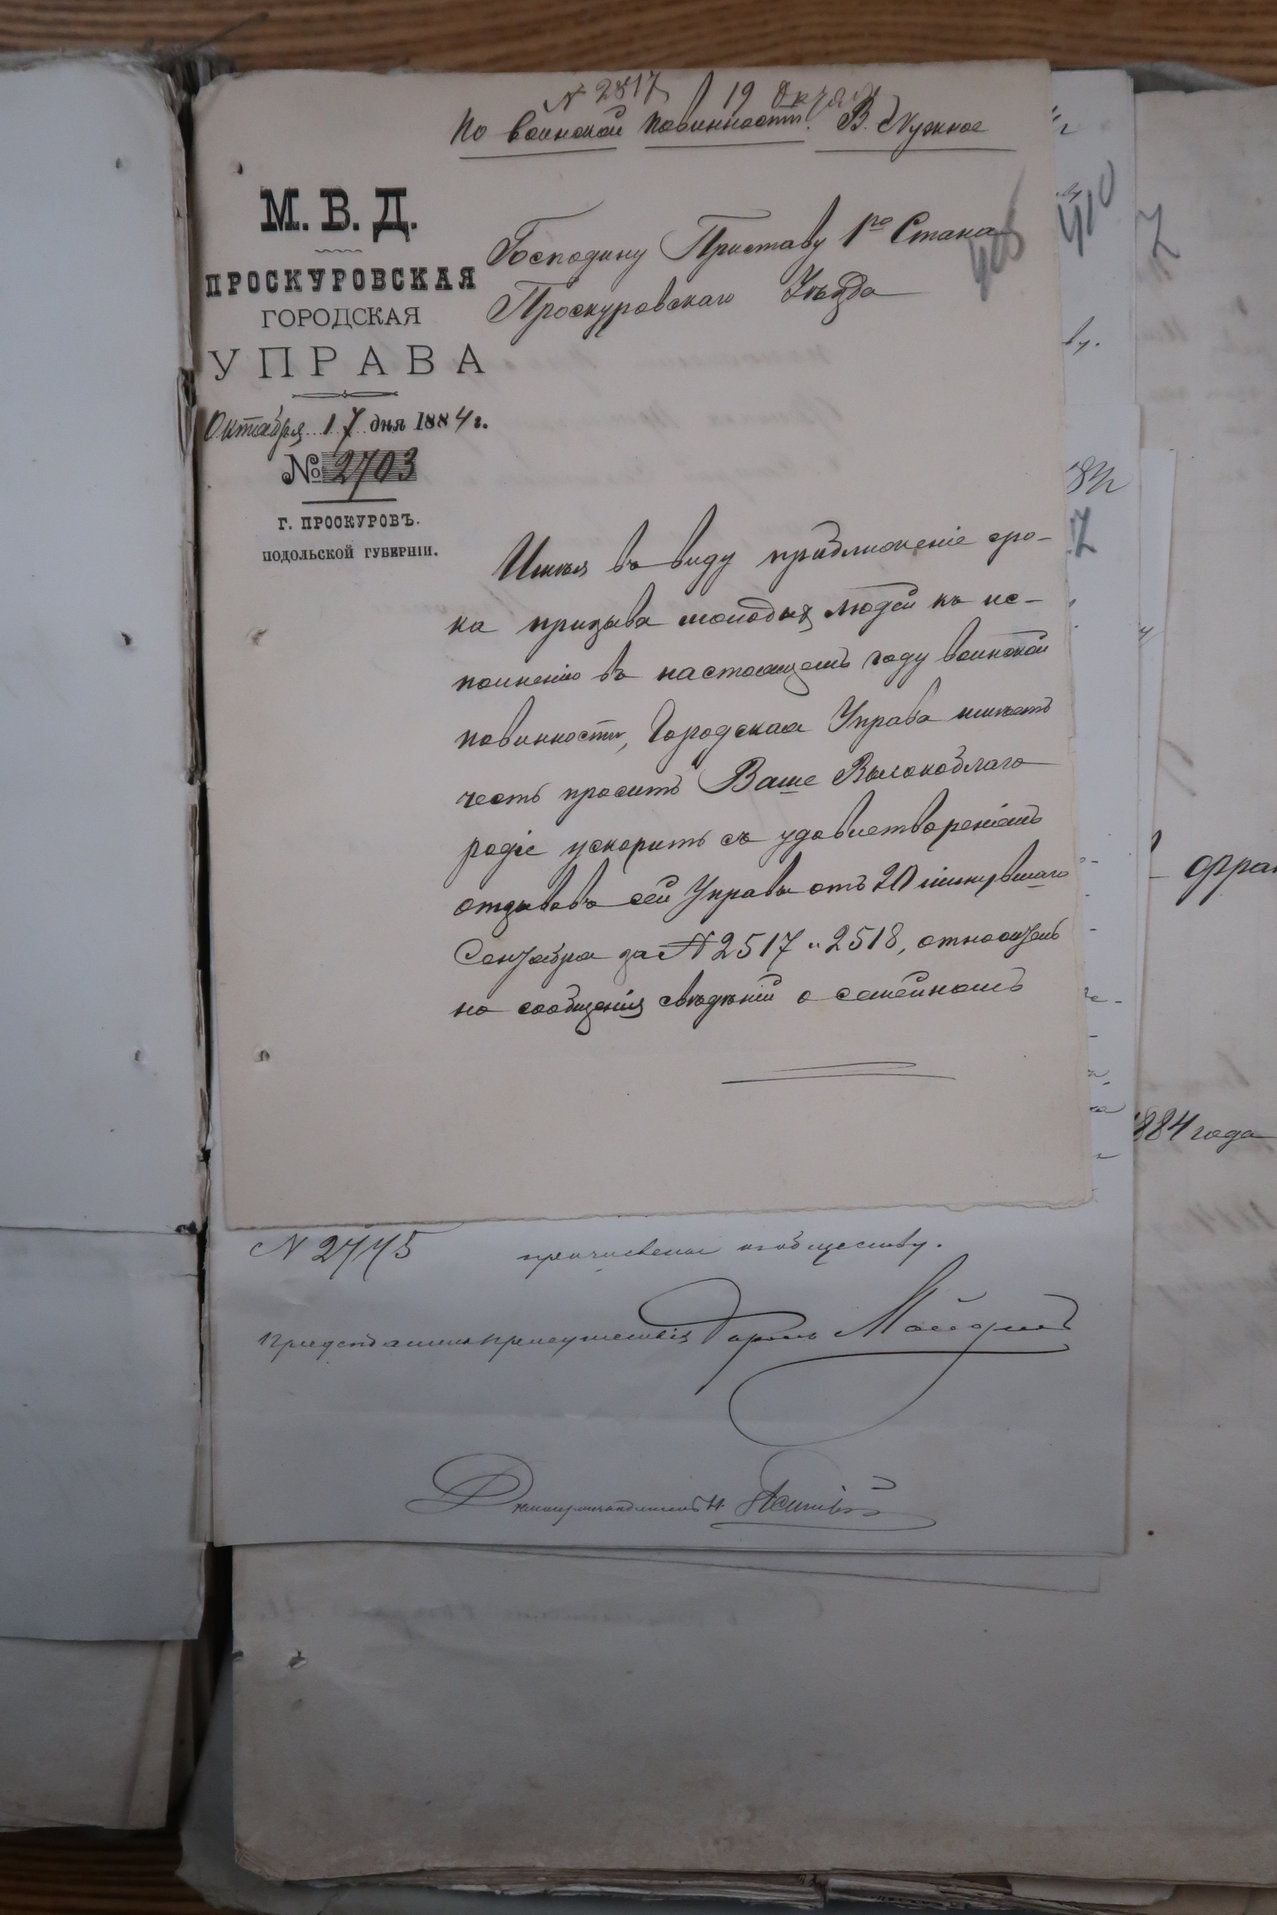 № 2817 19 Октя
По воинской повинности. В. Нужное
М. В. Д.
ПРОСКУРОВСКАЯ
ГОРОДСКАЯ
УПРАВА
Октября 17 дня 1884 г.
№ 2703
Г. ПРОСКУРОВЪ.
ПОДОЛЬСКОЙ ГУБЕРНІИ.
Господину Приставу 1го Стана
Проскуровскаго Уѣзда
408
Имѣя въ виду приближеніе сро-
ка призыва молодыхъ людей къ ис-
полненію въ настоящемъ году воинской
повинности, Городская Управа имѣетъ
честь просить Ваше Высокоблаго
родіе ускорить съ удовлетвореніемъ
отзывовъ сей Управы отъ 20 минувшаго
Сентября за № 2517 и 2518, относитель
но сообщенія свѣдѣній о семейномъ
410
1884 года
№ 2775
обществу.